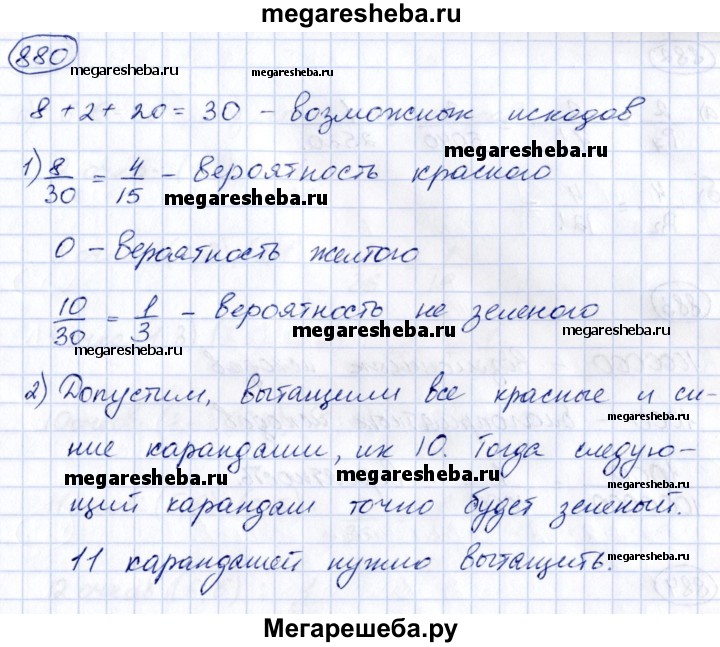 megaresheba.ru
880
megaresheba.ru
megaresheba.ru
8 + 2 + 20 = 30 – возможных исходов
megaresheba.ru
1) 8/30 = 4/15 – вероятность красного
megaresheba.ru
0 – вероятность желтого
10/30 = 1/3 – вероятность не зеленого
megaresheba.ru
megaresheba.ru
megaresheba.ru
2) Допустим, вытащили все красные и си-
ние карандаши, их 10. Тогда следую-
megaresheba.ru
megaresheba.ru
щий карандаш точно будет зеленый.
11 карандашей нужно вытащить.
megaresheba.ru
megaresheba.ru
Мегарешеба.ру